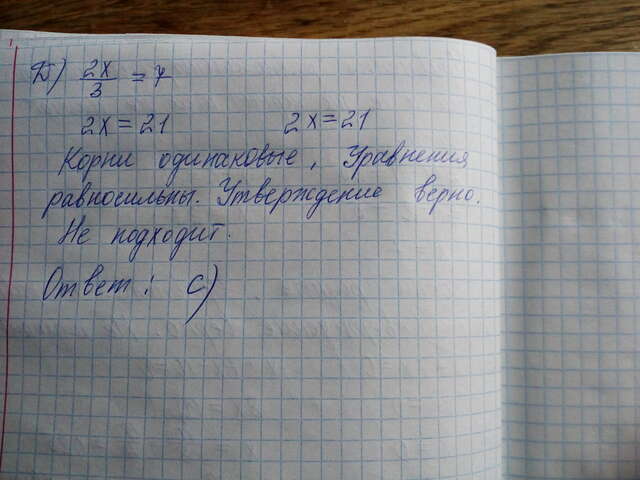 Д) 2x/3 = 7
2x = 21 2x = 21
Корни одинаковые, Уравнения
равносильны. Утверждение верно.
Не подходит.
Ответ: с)